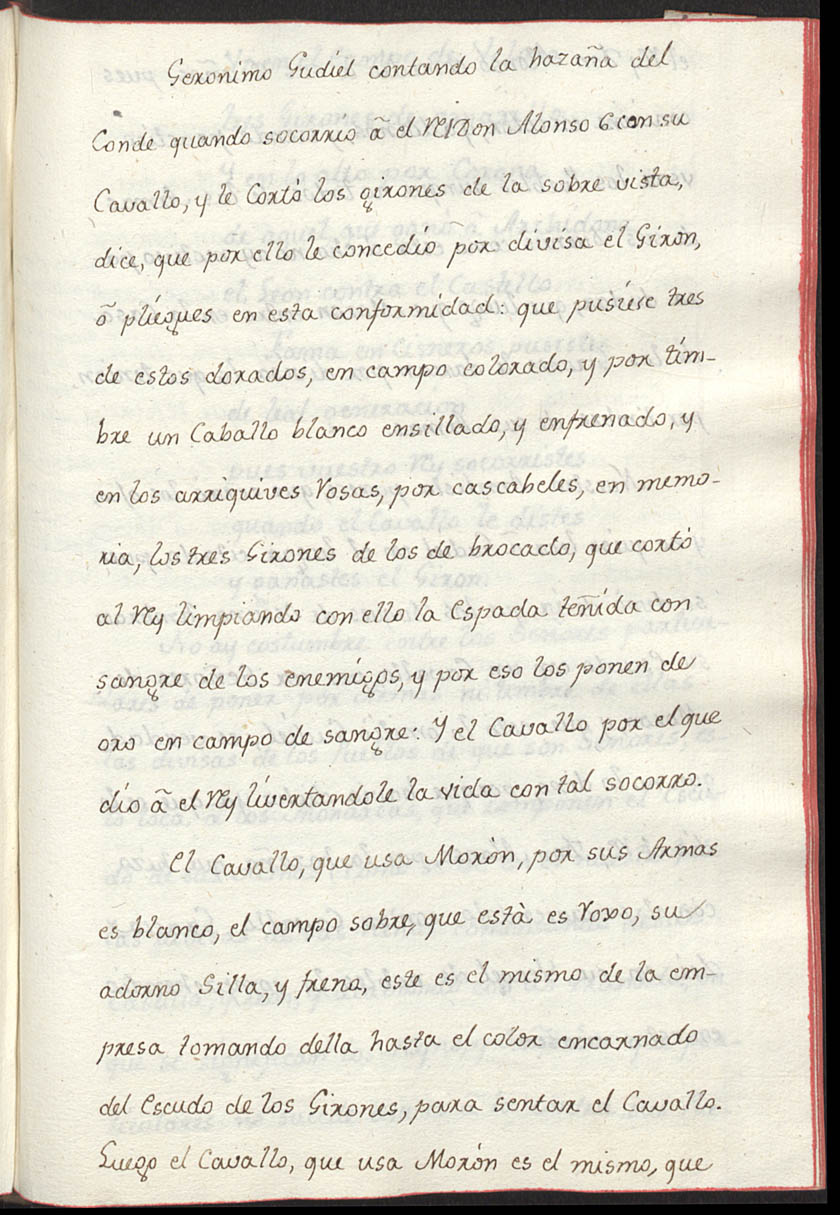 Geronimo Gudiel contando la hazaña del
Conde quando socorrió â el Rey Don Alonso 6 con su
Cavallo, y le Cortò los girones de la sobre vista,
dice, que por ello le concedio por divisa el Giron,
ô pliegues en esta conformidad: que pusiese tres
de estos dorados, en campo colorado, y por tim-
bre un Caballo blanco ensillado, y enfrenado, y
en los arriquives Rosas, por cascabeles, en memo-
ria, los tres Girones de los de brocado, que cortò
al Rey limpiando con ello la Espada teñida con
sangre de los enemigos, y por eso los ponen de
oro en campo de sangre: Y el Cavallo por el que
dio â el Rey livertandole la vida con tal socorro.
El Cavallo, que usa Moròn, por sus Armas
es blanco, el campo sobre, que està es Roxo, su
adorno Silla, y frena, este es el mismo de la em-
presa tomando della hasta el color encarnado
del Escudo de los Girones, para sentar el Cavallo.
Luego el Cavallo, que usa Moròn es el mismo, que